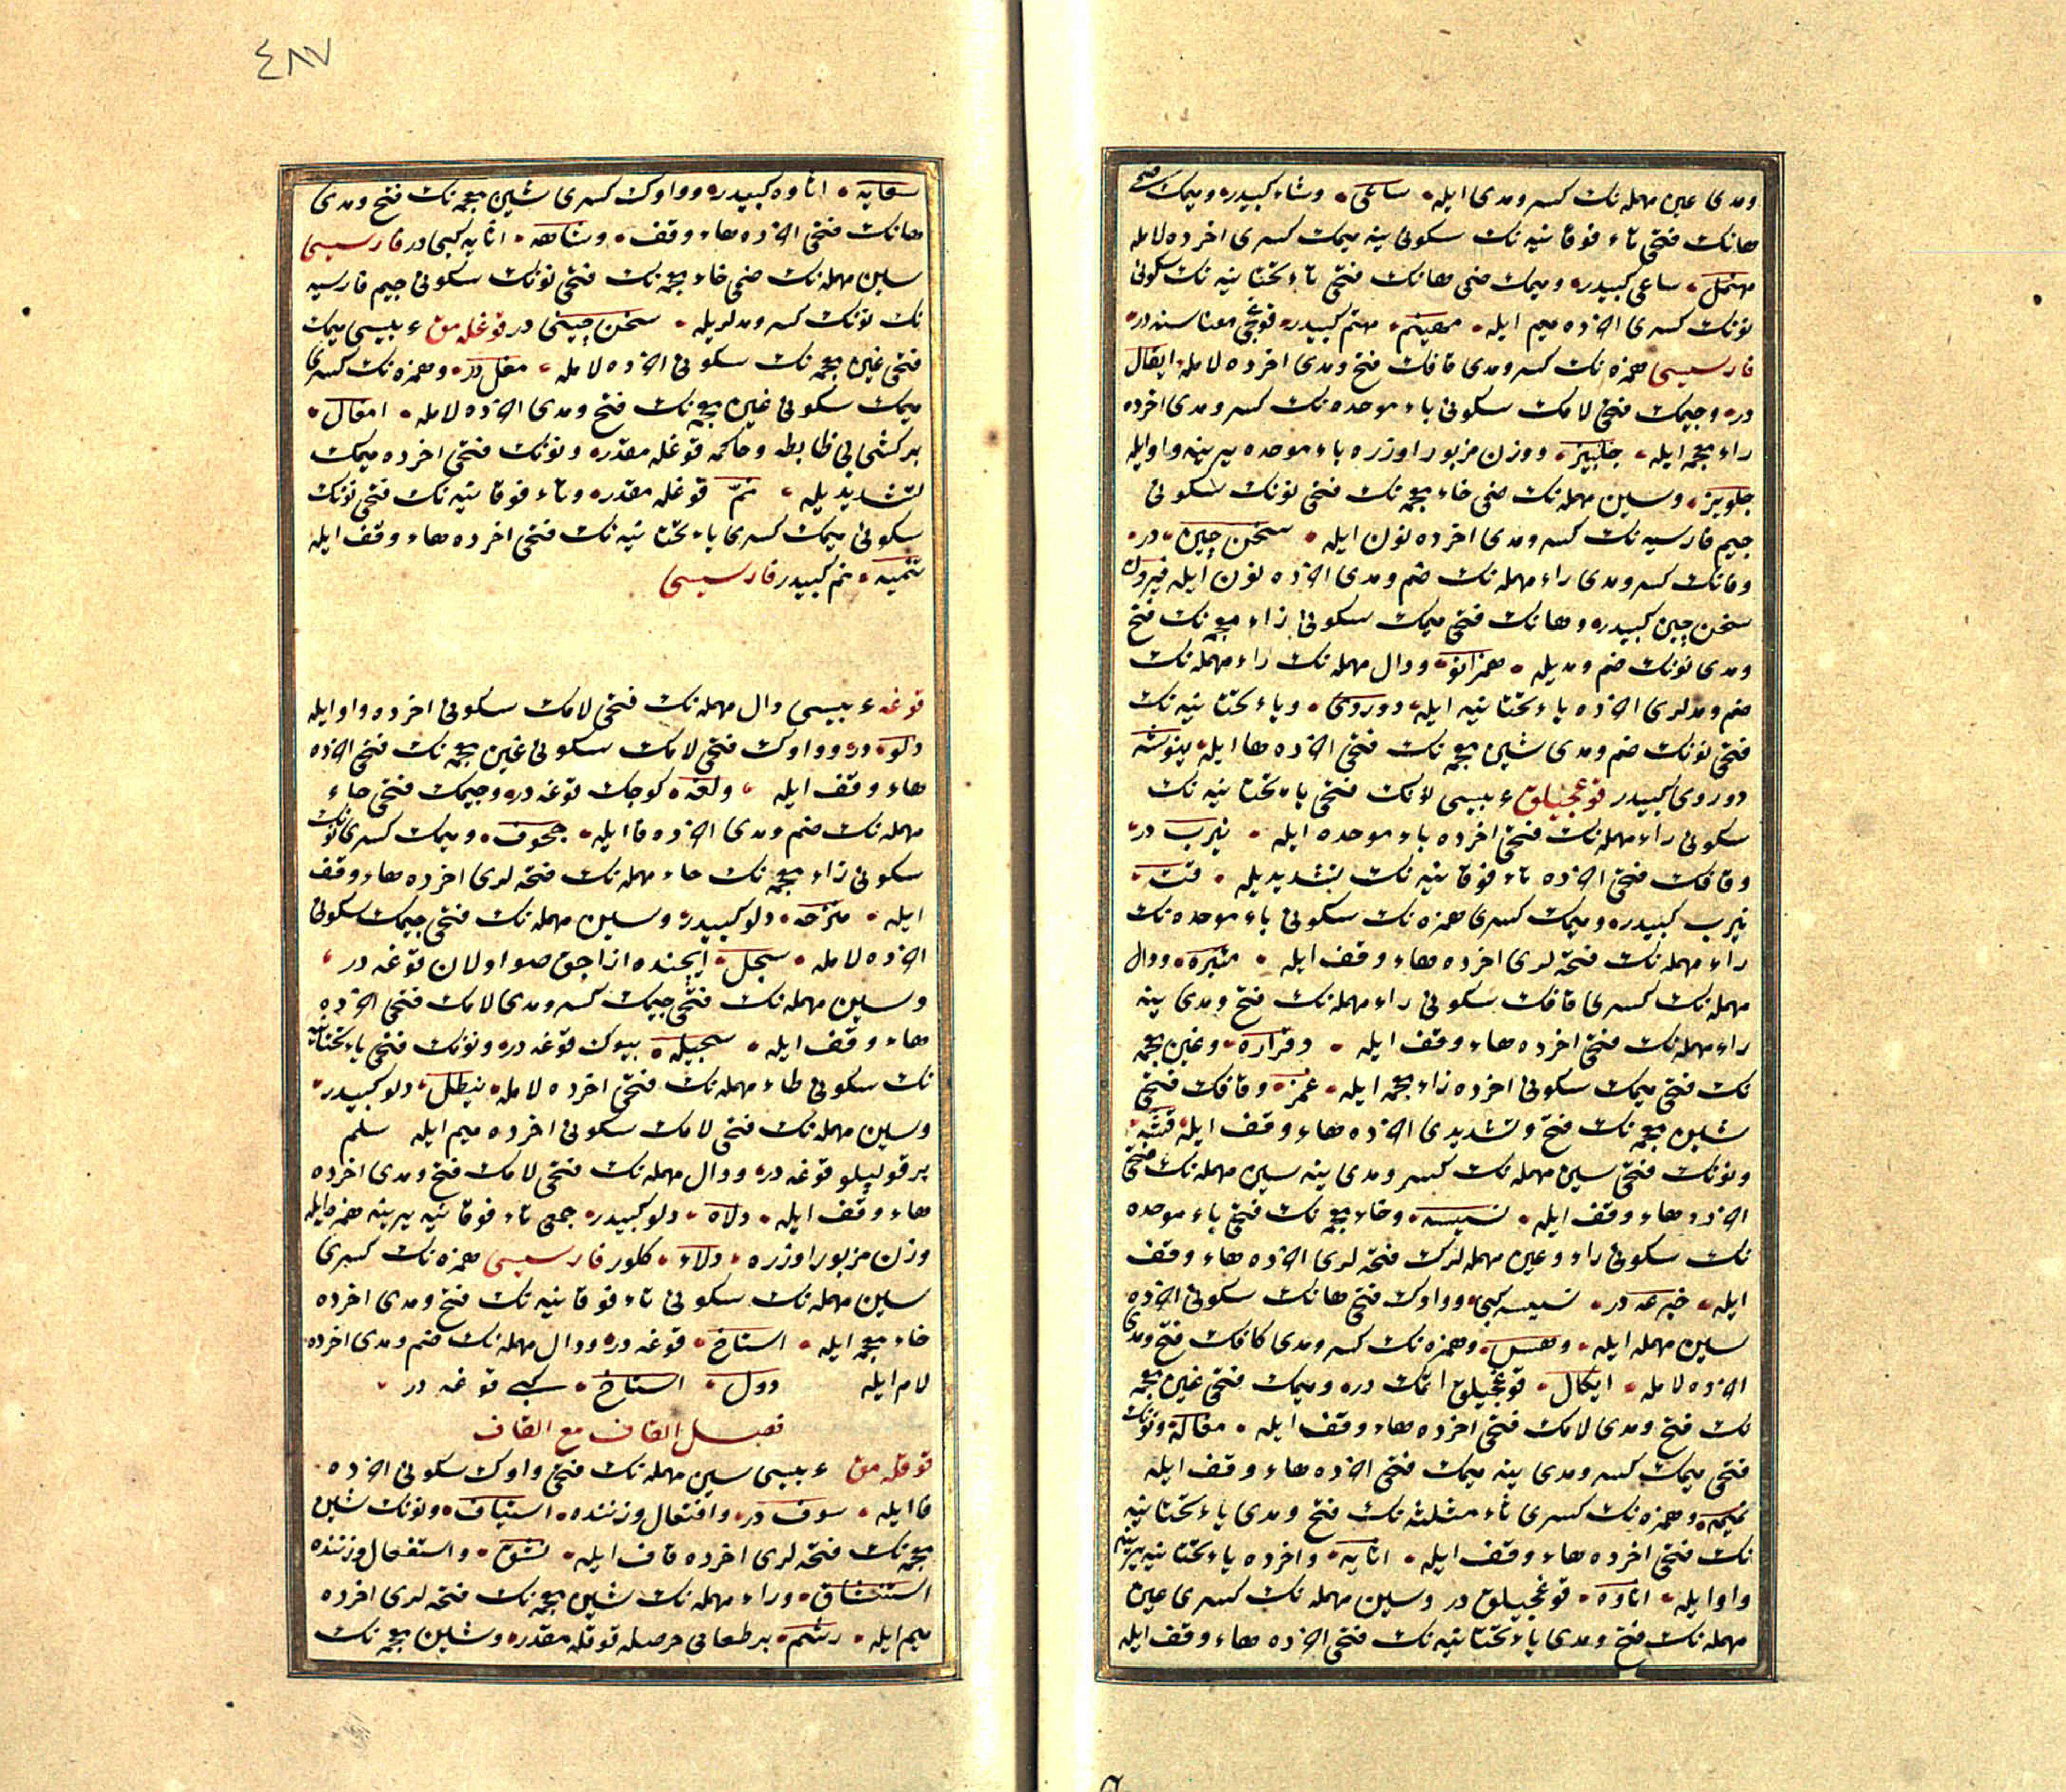 ومدى عين مهمله نك كسر ومدى ايله ساعى وشاء كبيدر وميمك ضمى
هانك فتحى تاء فوقانيه نك سكونى ينه ميمك كسرى اخرده لامله
مهتمل ساعى كبيدر وميمك ضمى هانك فتحى ياء تحتانيه نك سكونى
نونك كسرى اخرده ميم ايله مهينم مهتم كبيدر قوغجى معناسنه در
فارسيسى همزه نك كسر ومدى قافك فتح ومدى اخرده لامله ايقال
در وجيمك فتحى لامك سكونى باء موحده نك كسر ومدى اخرده
زاء معجمه ايله جلبيز ووزن مزبور اوزره باء موحده يرينه واو ايله
جلويز وسين مهمله نك ضمى خاء معجمه نك فتحى نونك سكونى
جيم فارسيه نك كسر ومدى اخرده نون ايله سخن چين در
وفانك كسر ومدى راء مهمله نك ضم ومدى اخرده نون ايله فيرون
سخن چين كبيدر وهانك فتحى ميمك سكونى زاء معجمه نك فتح
ومدى نونك ضم ومديله همزانو ودال مهمله نك راء مهمله نك
ضم ومدلرى اخرده ياء تحتانيه ايله دوروى وياء تحتانيه نك
فتحى نونك ضم ومدى شين معجمه نك فتحى اخرده ها ايله ينوشه
دوروى كبيدر قوغجيلق عربيسى نونك فتحى ياء تحتانيه نك
سكونى راء مهمله نك فتحى اخرده باء موحده ايله نيرب در
وقافك فتحى اخرده تاء فوقانيه نك تشديديله قت
نيرب كبيدر وميمك كسرى همزه نك سكونى باء موحده نك
راء مهمله نك فتحه لرى اخرده هاء وقف ايله مئبره ودال
مهمله نك كسرى قافك سكونى راء مهمله نك فتح ومدى ينه
راء مهمله نك فتحى اخرده هاء وقف ايله دقراره وغين معجمه
نك فتحى ميمك سكونى اخرده زاء معجمه ايله غمز وقافك فتحى
شين معجمه نك فتح وتشديدى اخرده هاء وقف ايله
ونونك فتحى سين مهمله نك كسر ومدى ينه سين مهمله نك فتحى
اخرده هاء وقف ايله نسيسه وخاء معجمه نك فتحى باء موحده
نك سكونى راء وعين مهمله لرك فتحه لرى اخرده هاء وقف
ايله خبرعه در نسيسه كبى وواوك فتحى هانك سكونى اخرده
سين مهمله ايله وهس وهمزه نك كسر ومدى كافك فتح ومدى
اخرده لامله ايكال قوغجيلق اتمك در وميمك فتحى غين معجمه
نك فتح ومدى لامك فتحى اخرده هاء وقف ايله مغاله ونونك
فتحى ميمك كسر ومدى ينه ميمك فتحى اخرده هاء وقف ايله
نميمه وهمزه نك كسرى ثاء مثلثه نك فتح ومدى ياء تحتانيه
نك فتحى اخرده هاء وقف ايله اثايه واخرده ياء تحتانيه يرينه
واو ايله اثاوه قوغجيلق در وسين مهمله نك كسرى عين
مهمله نك فتح ومدى ياء تحتانيه نك فتحى اخرده هاء وقف ايله
٤٨٧
سعايه اثاوه كبيدر وواوك كسرى شين معجمه نك فتح ومدى
هانك فتحى اخرده هاء وقف وشاهه اثايه كبى در فارسيسى
سين مهمله نك ضمى خاء معجمه نك فتحى نونك سكونى جيم فارسيه
نك نونك كسر ومدلريله سخن چينى در قوغله مق عربيسى ميمك
فتحى غين معجمه نك سكونى اخرده لامله مغل در وهمزه نك كسرى
ميمك سكونى غين معجمه نك فتح ومدى اخرده لامله امغال
بر كشى يى ظابطه وحاكمه قوغله مقدر ونونك فتحى اخرده ميمك
تشديديله نمّ قوغله مقدر وتاء فوقانيه نك فتحى نونك
سكونى ميمك كسرى ياء تحتانيه نك فتحى اخرده هاء وقف ايله
تنميه نم كبيدر فارسيسى
قوغه عربيسى دال مهمله نك فتحى لامك سكونى اخرده واو ايله
دلو در وواوك فتحى لامك سكونى غين معجمه نك فتحى اخرده
هاء وقف ايله ولغه كوچك قوغه در وجيمك فتحى حاء
مهمله نك ضم ومدى اخرده فا ايله جحوف وميمك كسرى نونك
سكونى زاء معجمه نك حاء مهمله نك فتحه لرى اخرده هاء وقف
ايله منزحه دلو كبيدر وسين مهمله نك فتحى جيمك سكونى
اخرده لامله سجل ايچنده ازاجق صو اولان قوغه در
وسين مهمله نك فتحى جيمك كسر ومدى لامك فتحى اخرده
هاء وقف ايله سجيله بيوك قوغه در ونونك فتحى ياء تحتانيه
نك سكونى طاء مهمله نك فتحى اخرده لامله نيطل دلو كبيدر
وسين مهمله نك فتحى لامك سكونى اخرده ميم ايله سلم
بر قولپلو قوغه در ودال مهمله نك فتحى لامك فتح ومدى اخرده
هاء وقف ايله دلاه دلو كبيدر جمعى تاء فوقانيه يرينه همزه ايله
وزن مزبور اوزره دلاء كلور فارسيسى همزه نك كسرى
سين مهمله نك سكونى تاء فوقانيه نك فتح ومدى اخرده
خاء معجمه ايله استاخ قوغه در ودال مهمله نك ضم ومدى اخرده
لام ايله دول استاخ كبى قوغه در
فصل القاف مع القاف
قوقله مق عربيسى سين مهمله نك فتحى واوك سكونى اخرده
فا ايله سوف در وافتعال وزننده استياف ونونك شين
معجمه نك فتحه لرى اخرده قاف ايله نشق واستفعال وزننده
استنشاق وراء مهمله نك شين معجمه نك فتحه لرى اخرده
ميم ايله رشم بر طعامى حرصله قوقله مقدر وشين معجمه نك